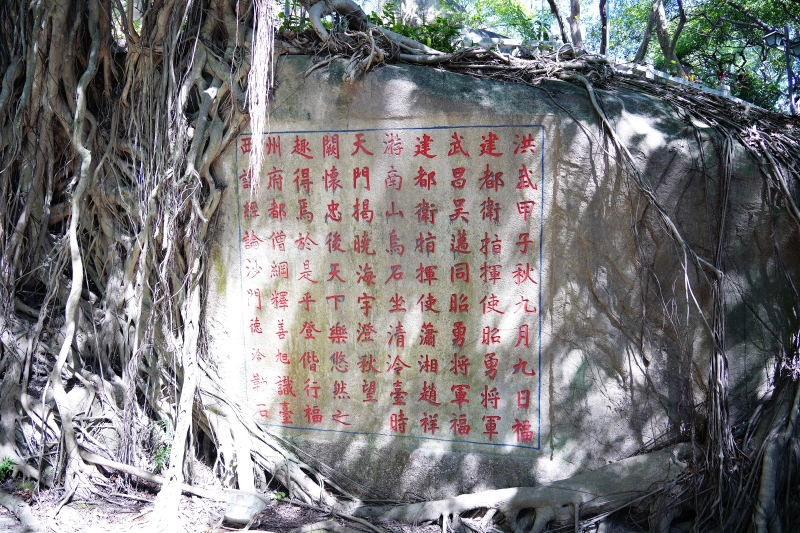 洪武甲子秋九月九日福
建都衛指揮使昭勇將軍
武昌吳邁同昭勇將軍福
建都衛指揮使瀟湘趙祥
游南山烏石坐清泠臺時
天門揭曉海宇澄秋望
闕懷忠後天下樂悠然之
趣得焉於是乎登偕行福
州府都僧綱釋善旭識臺
西講經論沙門德泠勒石